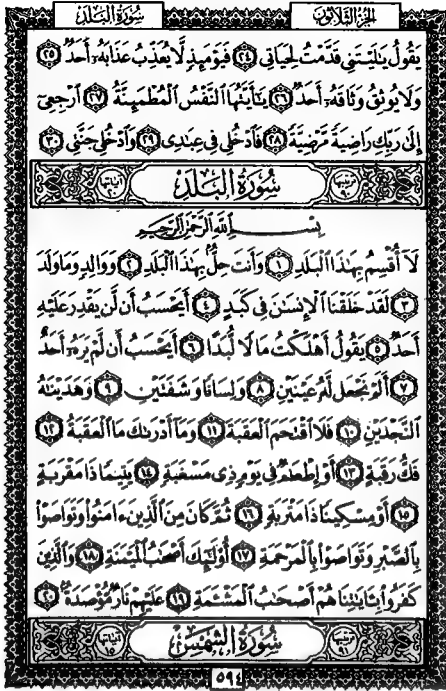 سُورَةُ الْبَلَدِ الجزء الثلاثون
يَقُولُ يَٰلَيْتَنِي قَدَّمْتُ لِحَيَاتِي ٢٤ فَيَوْمَئِذٍ لَّا يُعَذِّبُ عَذَابَهُۥٓ أَحَدٌ ٢٥
وَلَا يُوثِقُ وَثَاقَهُۥٓ أَحَدٌ ٢٦ يَٰٓأَيَّتُهَا النَّفْسُ الْمُطْمَئِنَّةُ ٢٧ ارْجِعِيٓ
إِلَىٰ رَبِّكِ رَاضِيَةً مَّرْضِيَّةً ٢٨ فَادْخُلِي فِي عِبَٰدِي ٢٩ وَادْخُلِي جَنَّتِي ٣٠
ترتيبها ٩٠ سُورَةُ الْبَلَدِ آياتها ٢٠
بِسْمِ اللَّهِ الرَّحْمَٰنِ الرَّحِيمِ
لَآ أُقْسِمُ بِهَٰذَا الْبَلَدِ ١ وَأَنتَ حِلٌّۢ بِهَٰذَا الْبَلَدِ ٢ وَوَالِدٍ وَمَا وَلَدَ
٣ لَقَدْ خَلَقْنَا الْإِنسَٰنَ فِي كَبَدٍ ٤ أَيَحْسَبُ أَن لَّن يَقْدِرَ عَلَيْهِ
أَحَدٌ ٥ يَقُولُ أَهْلَكْتُ مَالًا لُّبَدًا ٦ أَيَحْسَبُ أَن لَّمْ يَرَهُۥٓ أَحَدٌ
٧ أَلَمْ نَجْعَل لَّهُۥ عَيْنَيْنِ ٨ وَلِسَانًا وَشَفَتَيْنِ ٩ وَهَدَيْنَٰهُ
النَّجْدَيْنِ ١٠ فَلَا اقْتَحَمَ الْعَقَبَةَ ١١ وَمَآ أَدْرَىٰكَ مَا الْعَقَبَةُ ١٢
فَكُّ رَقَبَةٍ ١٣ أَوْ إِطْعَٰمٌ فِي يَوْمٍ ذِي مَسْغَبَةٍ ١٤ يَتِيمًا ذَا مَقْرَبَةٍ
١٥ أَوْ مِسْكِينًا ذَا مَتْرَبَةٍ ١٦ ثُمَّ كَانَ مِنَ الَّذِينَ ءَامَنُوا وَتَوَاصَوْا
بِالصَّبْرِ وَتَوَاصَوْا بِالْمَرْحَمَةِ ١٧ أُولَٰٓئِكَ أَصْحَٰبُ الْمَيْمَنَةِ ١٨ وَالَّذِينَ
كَفَرُوا بِـَٔايَٰتِنَا هُمْ أَصْحَٰبُ الْمَشْـَٔمَةِ ١٩ عَلَيْهِمْ نَارٌ مُّؤْصَدَةٌۢ ٢٠
ترتيبها ٩١ سُورَةُ الشَّمْسِ آياتها ١٥
٥٩٤